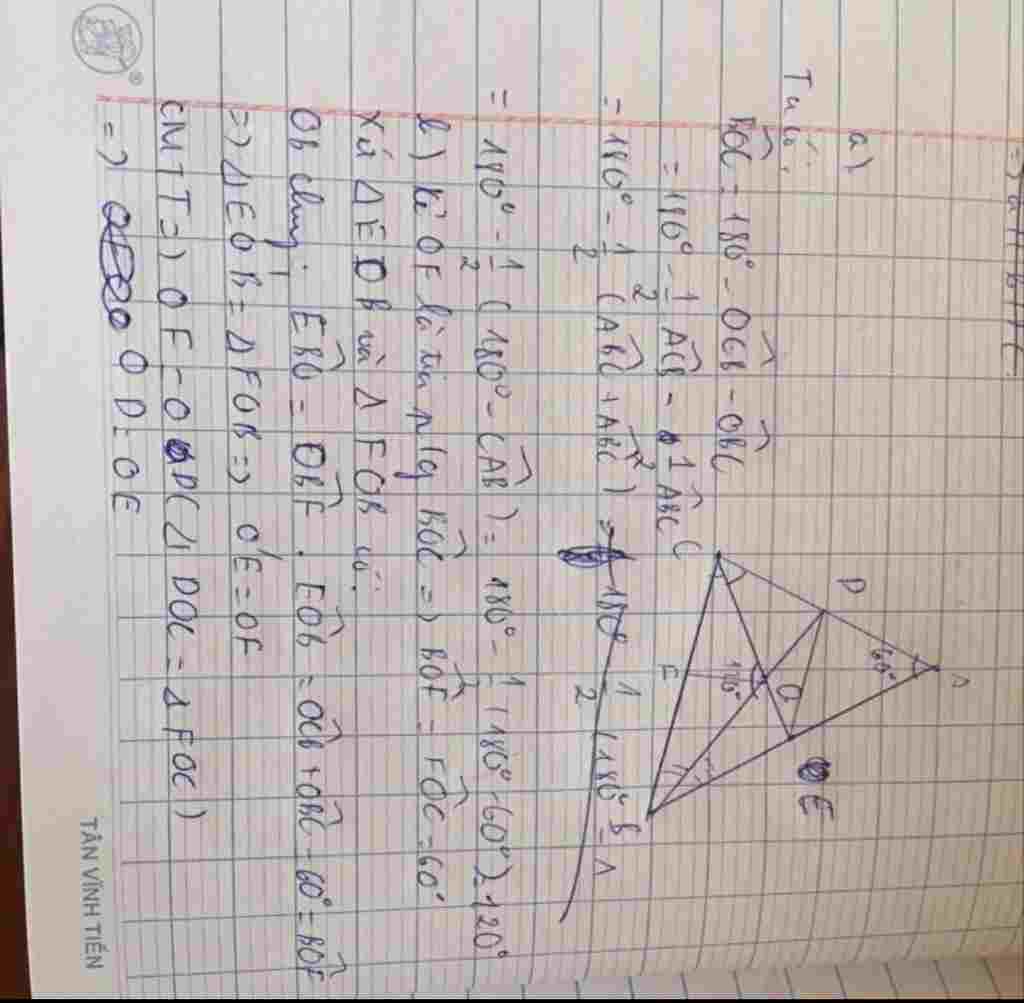 =) a // b // c
a)
Ta có:
BOC = 180° - OCB - OBC
= 180° - 1/2 ACB - 1/2 ABC
= 180° - 1/2 (ABC + ABC) = 180° 1/2 (180° - A
= 180° - 1/2 (180° - CAB) = 180° - 1/2 (180° - 60°) = 120°
b) Kẻ OF là tia p/g BOC =) BOF = FOC = 60°
Xét Δ EOB và Δ FOB có:
OB chung. EBO = OBF. EOB = OCB + OBC = 60° = BOF
=) Δ EOB = Δ FOB =) OE = OF
CMTT =) OF = OD (Δ DOC = Δ FOC)
=) OD = OE
A
60°
D
E
O
120°
F
C
B
TÂN VĨNH TIẾN
®